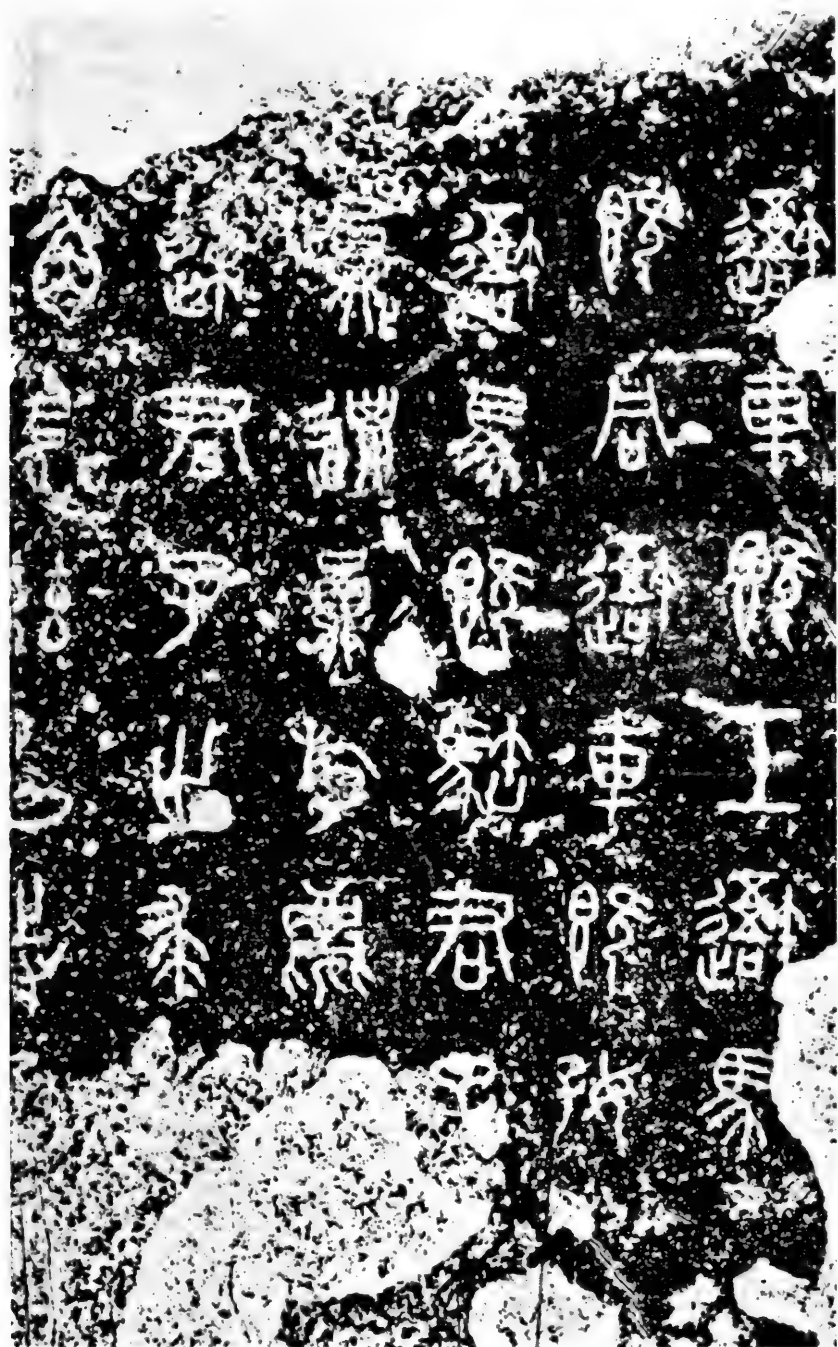 吾車既工吾馬
既同吾車既好
吾馬既騊君子
員邋員斿麀
速君子之求
角弓茲以寺